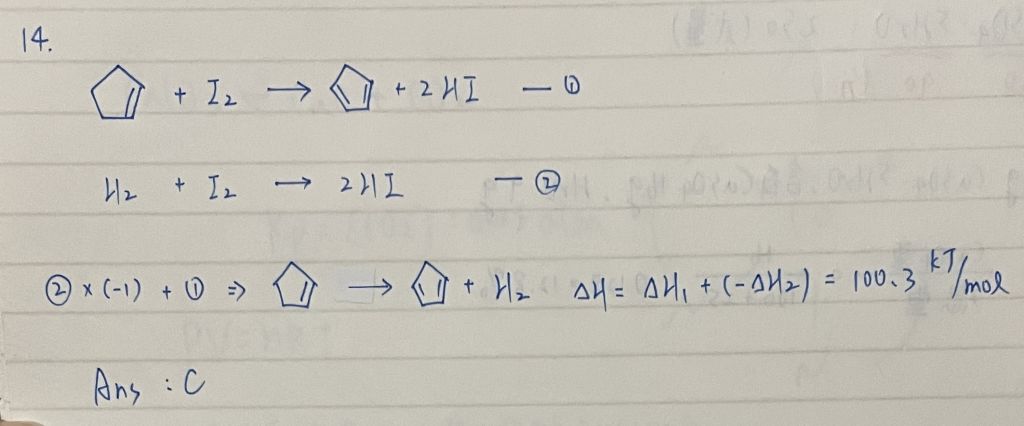 14.
+ I₂ → + 2HI — ①
H₂ + I₂ → 2HI — ②
② × (-1) + ① ⇒ → + H₂ ΔH = ΔH₁ + (-ΔH₂) = 100.3 kJ/mol
Ans : C